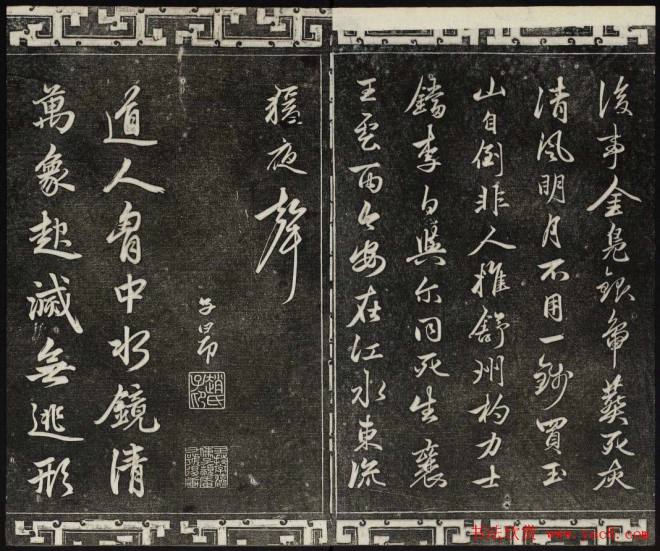 後事金凫銀龜葬死灰
清風明月不用一錢買玉
山自倒非人推舒州杓力士
鐺李白與尔同死生襄
王雲雨今安在江水東流
猿夜聲
子昂
趙氏子昂
道人胷中水鏡清
萬象起滅無逃形
书法欣赏